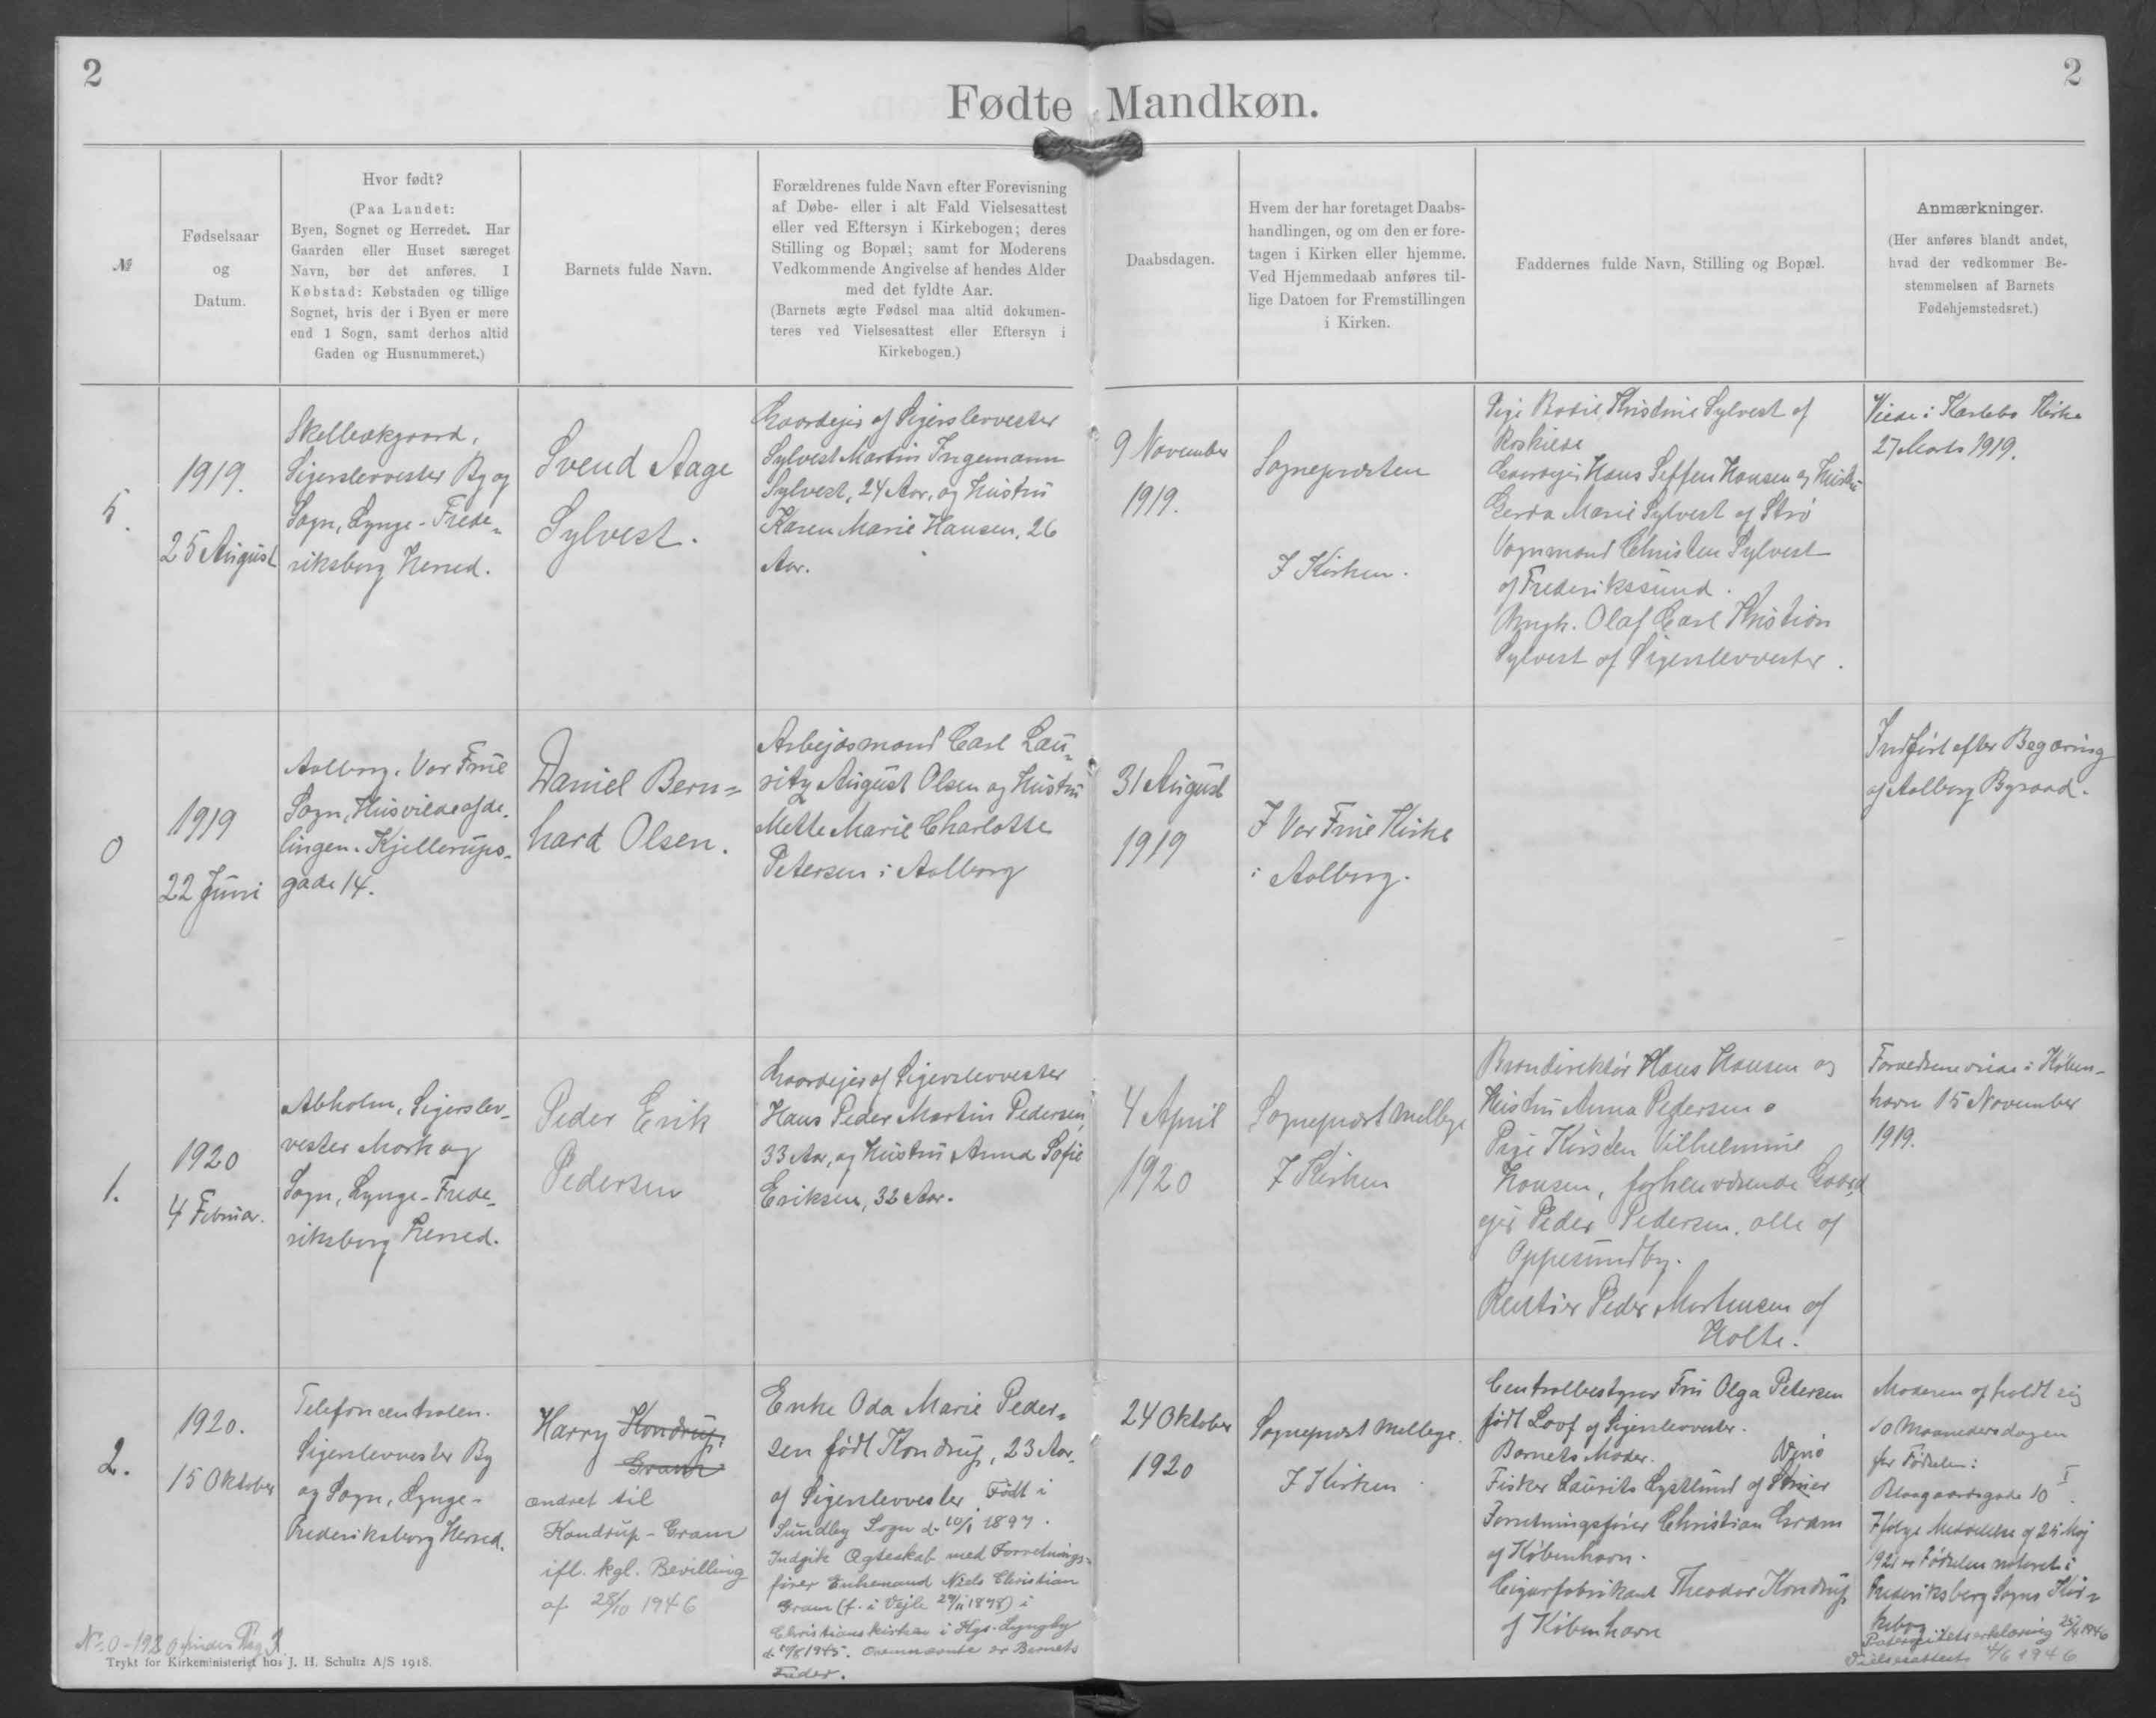 2
2
Fødte Mandkøn.
№
Fødselsaar
og
Datum.
Hvor født?
(Paa Landet:
Byen, Sognet og Herredet. Har
Gaarden eller Huset særeget
Navn, bør det anføres. I
Købstad: Købstaden og tillige
Sognet, hvis der i Byen er mere
end 1 Sogn, samt derhos altid
Gaden og Husnummeret.)
Barnets fulde Navn.
Forældrenes fulde Navn efter Forevisning
af Døbe- eller i alt Fald Vielsesattest
eller ved Eftersyn i Kirkebogen; deres
Stilling og Bopæl; samt for Moderens
Vedkommende Angivelse af hendes Alder
med det fyldte Aar.
(Barnets ægte Fødsel maa altid dokumen-
teres ved Vielsesattest eller Eftersyn i
Kirkebogen.)
Daabsdagen.
Hvem der har foretaget Daabs-
handlingen, og om den er fore-
tagen i Kirken eller hjemme.
Ved Hjemmedaab anføres til-
lige Datoen for Fremstillingen
i Kirken.
Faddernes fulde Navn, Stilling og Bopæl.
Anmærkninger.
(Her anføres blandt andet,
hvad der vedkommer Be-
stemmelsen af Barnets
Fødehjemstedsret.)
5.
1919.
25 August
Skelbækgaard,
Sigerslevvester By og
Sogn, Lynge-Frede-
riksborg Herred.
Svend Aage
Sylvest.
Gaardejer af Sigerslevvester
Sylvest Martin Ingemann
Sylvest, 24 Aar, og Hustru
Karen Marie Hansen, 26
Aar.
9 November
1919.
Sognepræsten
I Kirken.
Pige Bodil Kristine Sylvest af
Roskilde
Gaardejer Hans Steffen Hansen og Hustru
Gerda Marie Sylvest af Strø
Vognmand Christen Sylvest
af Frederikssund.
Ungk. Olaf Carl Kristian
Sylvest af Sigerslevvester.
Viede i Karlebo Kirke
27 Marts 1919.
0
1919
22 Juni
Aalborg. Vor Frue
Sogn, Husvildeafde-
lingen. Kjellerups-
gade 14.
Daniel Bern=
hard Olsen.
Arbejdsmand Carl Lau-
ritz August Olsen og Hustru
Mette Marie Charlotte
Petersen i Aalborg
31 August
1919
I Vor Frue Kirke
i Aalborg.
Indført efter Begæring
af Aalborg Byraad.
1.
1920
4 Februar.
Abholm, Sigerslev-
vester Mark og
Sogn, Lynge-Frede-
riksborg Herred.
Peder Erik
Pedersen
Gaardejer af Sigerslevvester
Hans Peder Martin Pedersen,
33 Aar, og Hustru Anna Sofie
Eriksen, 32 Aar.
4 April
1920
Sognepræst Mellbye
I Kirken
Branddirektør Hans Hansen og
Hustru Anna Pedersen
Pige Kirsten Vilhelmine
Hansen, forhenværende Gaard-
ejer Peder Pedersen, alle af
Oppesundby.
Rentier Peder Mortensen af
Holte.
Forældrene viede i Køben-
havn 15 November
1919.
2.
1920.
15 Oktober
Telefoncentralen.
Sigerslevvester By
og Sogn, Lynge-
Frederiksborg Herred.
Harry Kondrup
Gram
ændret til
Kondrup-Gram
ifl. kgl. Bevilling
af 28/10 1946
Enke Oda Marie Peder-
sen født Kondrup, 23 Aar,
af Sigerslevvester. Født i
Sundby Sogn d. 10/1 1897.
Indgik Ægteskab med Forretnings-
fører Enkemand Niels Christian
Gram (f. i Vejle 29/11 1878) i
Christianskirken i Kgs. Lyngby
1945. Ovennævnte er Barnets
Fader.
24 Oktober
1920
Sognepræst Mellbye.
I Kirken
Centralbestyrer Fru Olga Petersen
født Loof af Sigerslevvester.
Barnets Moder.
Fisker Laurits Lystlund af
Forretningsfører Christian Gram
af København.
Cigarfabrikant Theodor Kondrup
af København
Moderen opholdt sig
10 Maanedersdagen
før Fødselen:
Blaagaardsgade 10 I.
Ifølge Meddelelse af 25 Maj
1921 er Fødselen noteret i
Frederiksberg Sogns Kir-
kebog
Paternitetserklæring 1946
Vielsesattest 4/6 1946
No 0-1920 findes Pag 3.
Trykt for Kirkeministeriet hos J. H. Schultz A/S 1918.